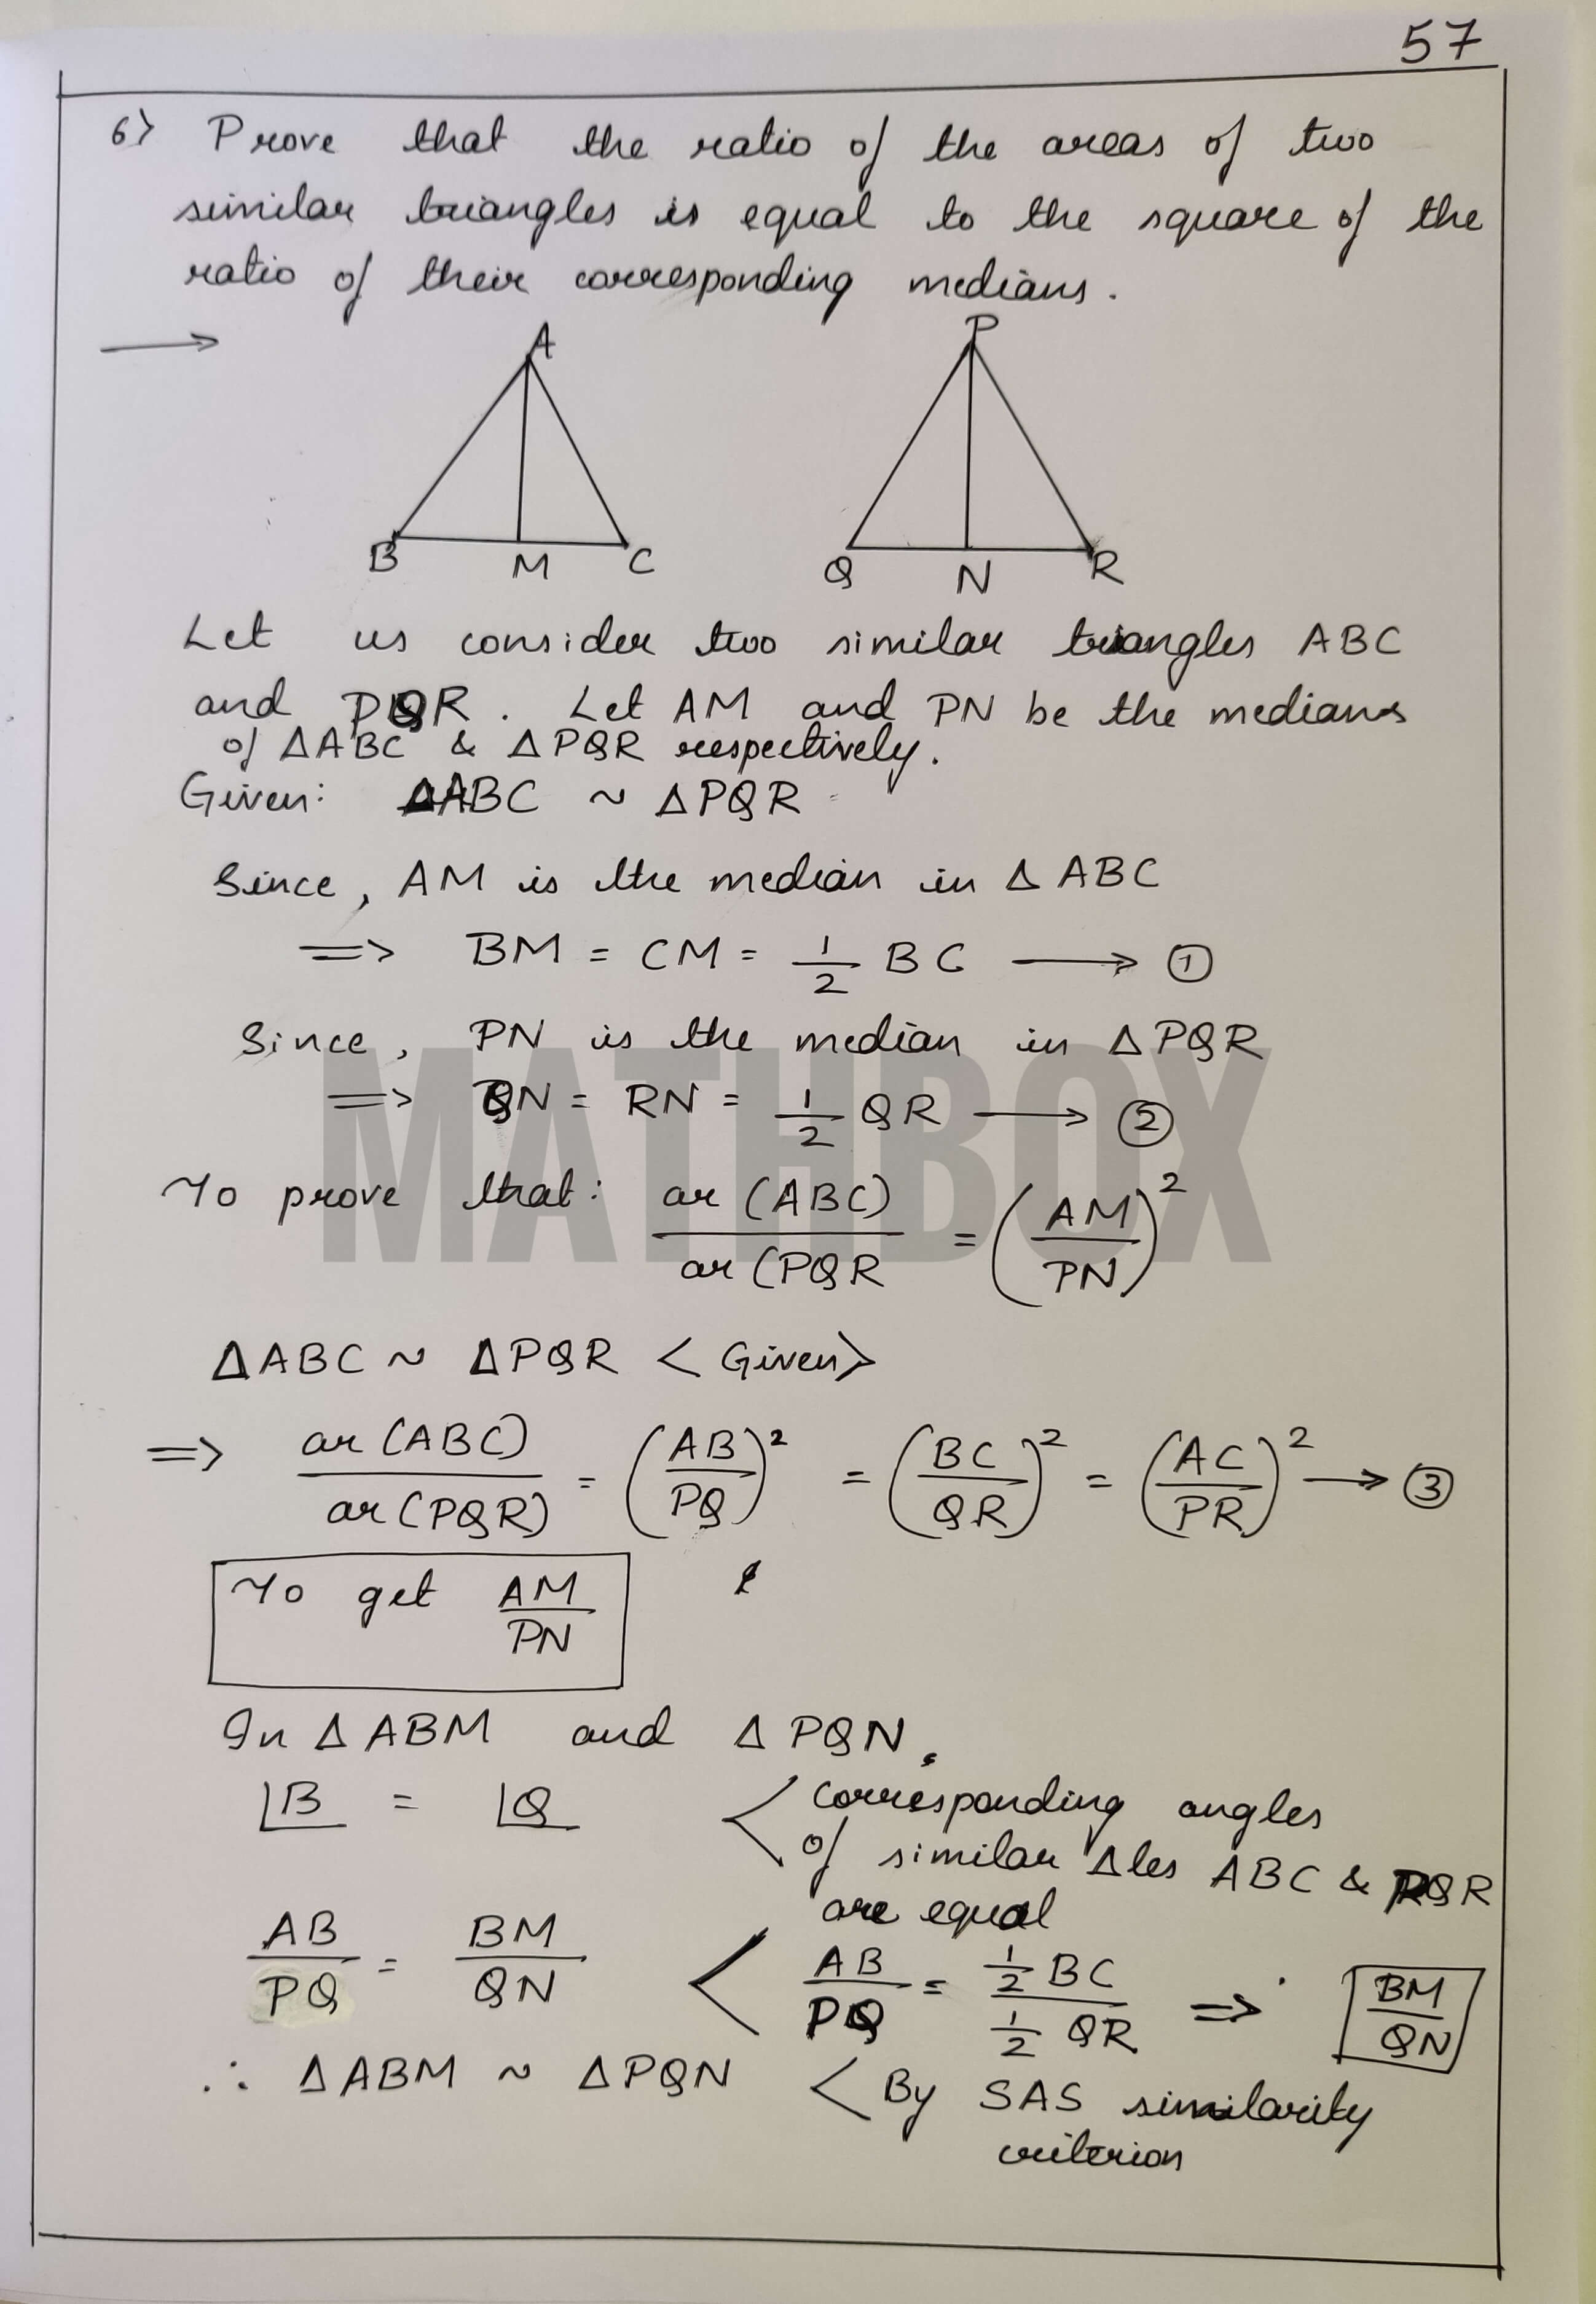 57
6> Prove that the ratio of the areas of two
similar triangles is equal to the square of the
ratio of their corresponding medians.
→
A P
B M C Q N R
Let us consider two similar triangles ABC
and PQR. Let AM and PN be the medians
of ΔABC & ΔPQR respectively.
Given: ΔABC ~ ΔPQR
Since, AM is the median in ΔABC
=> BM = CM = 1/2 BC → ①
Since, PN is the median in ΔPQR
=> QN = RN = 1/2 QR → ②
MATHBOX
To prove that: ar (ABC) / ar (PQR = (AM/PN)²
ΔABC ~ ΔPQR < Given>
=> ar (ABC) / ar (PQR) = (AB/PQ)² = (BC/QR)² = (AC/PR)² → ③
To get AM/PN
In ΔABM and ΔPQN,
∠B = ∠Q < corresponding angles
of similar Δles ABC & PQR
are equal
AB/PQ = BM/QN < AB/PQ = 1/2 BC / 1/2 QR => BM/QN
∴ ΔABM ~ ΔPQN < By SAS similarity
criterion